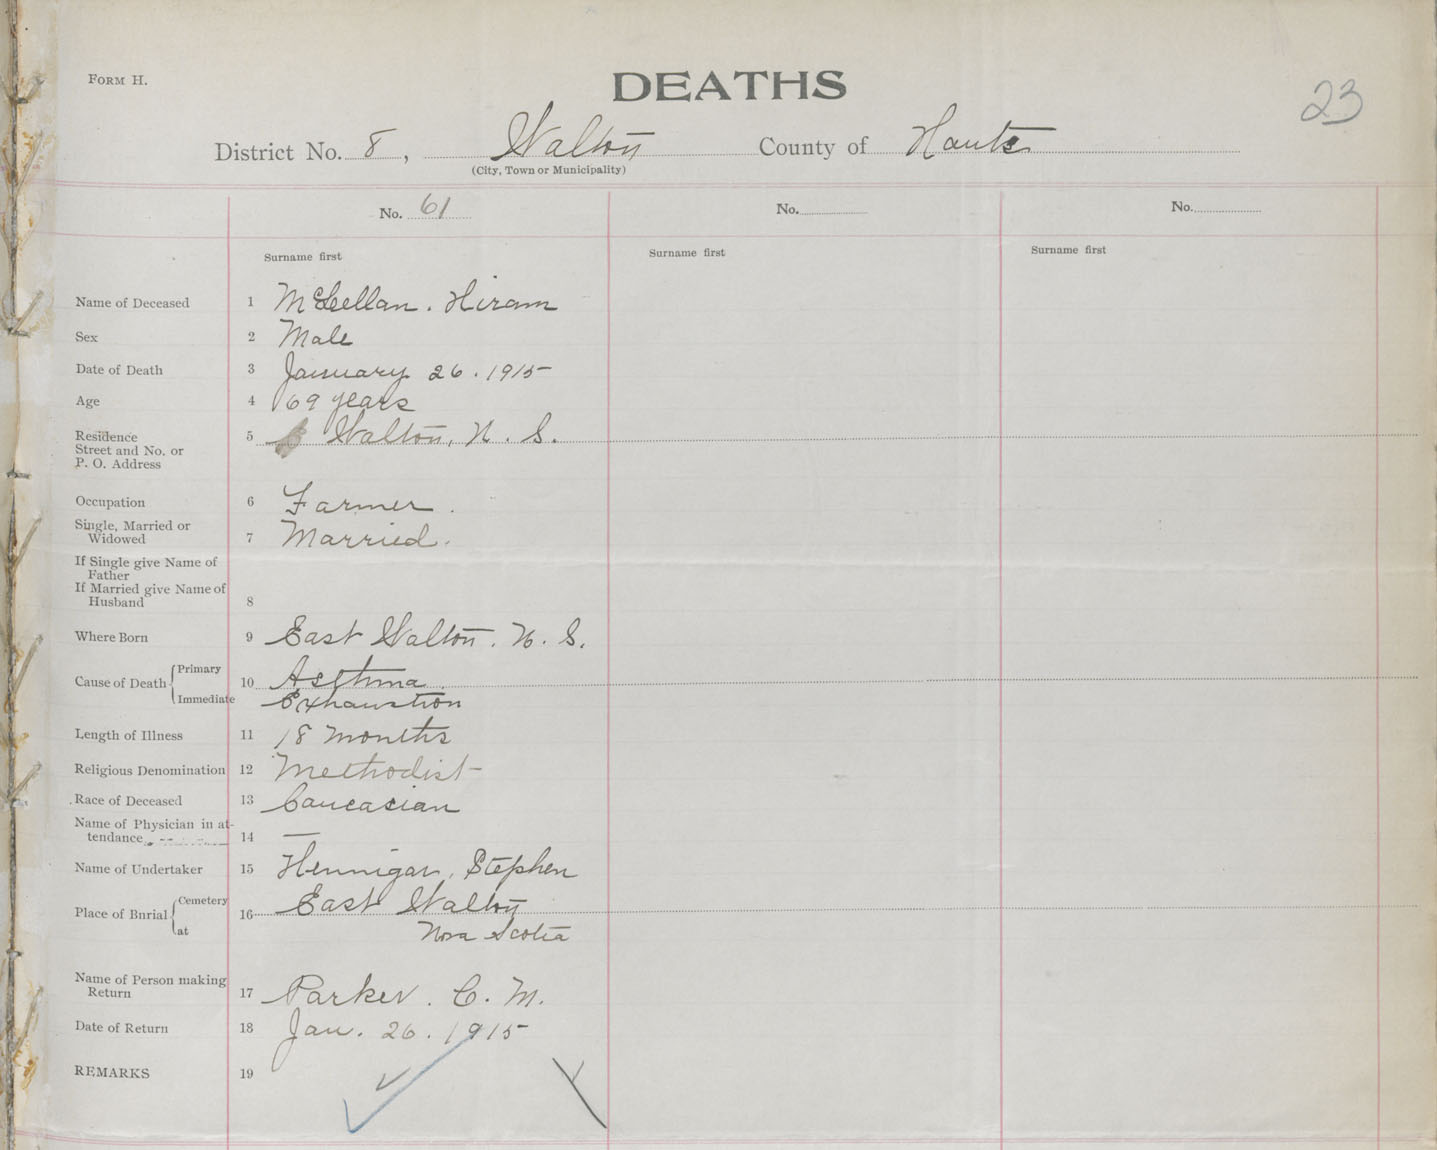 FORM H.
DEATHS
23
District No. 8, Walton County of Hants
(City, Town or Municipality)
No. 61 No. No.
Surname first Surname first Surname first
Name of Deceased 1 McLellan. Hiram
Sex 2 Male
Date of Death 3 January 26. 1915
Age 4 69 years
Residence 5 Walton, N. S.
Street and No. or
P. O. Address
Occupation 6 Farmer.
Single, Married or
Widowed 7 Married.
If Single give Name of
Father
If Married give Name of
Husband 8
Where Born 9 East Walton. N. S.
Cause of Death Primary 10 Asthma
Immediate Exhaustion
Length of Illness 11 18 months
Religious Denomination 12 Methodist
Race of Deceased 13 Caucasian
Name of Physician in at-
tendance 14 —
Name of Undertaker 15 Hennigar, Stephen
Place of Burial Cemetery 16 East Walton
at Nova Scotia
Name of Person making
Return 17 Parker. C. M.
Date of Return 18 Jan. 26. 1915
REMARKS 19